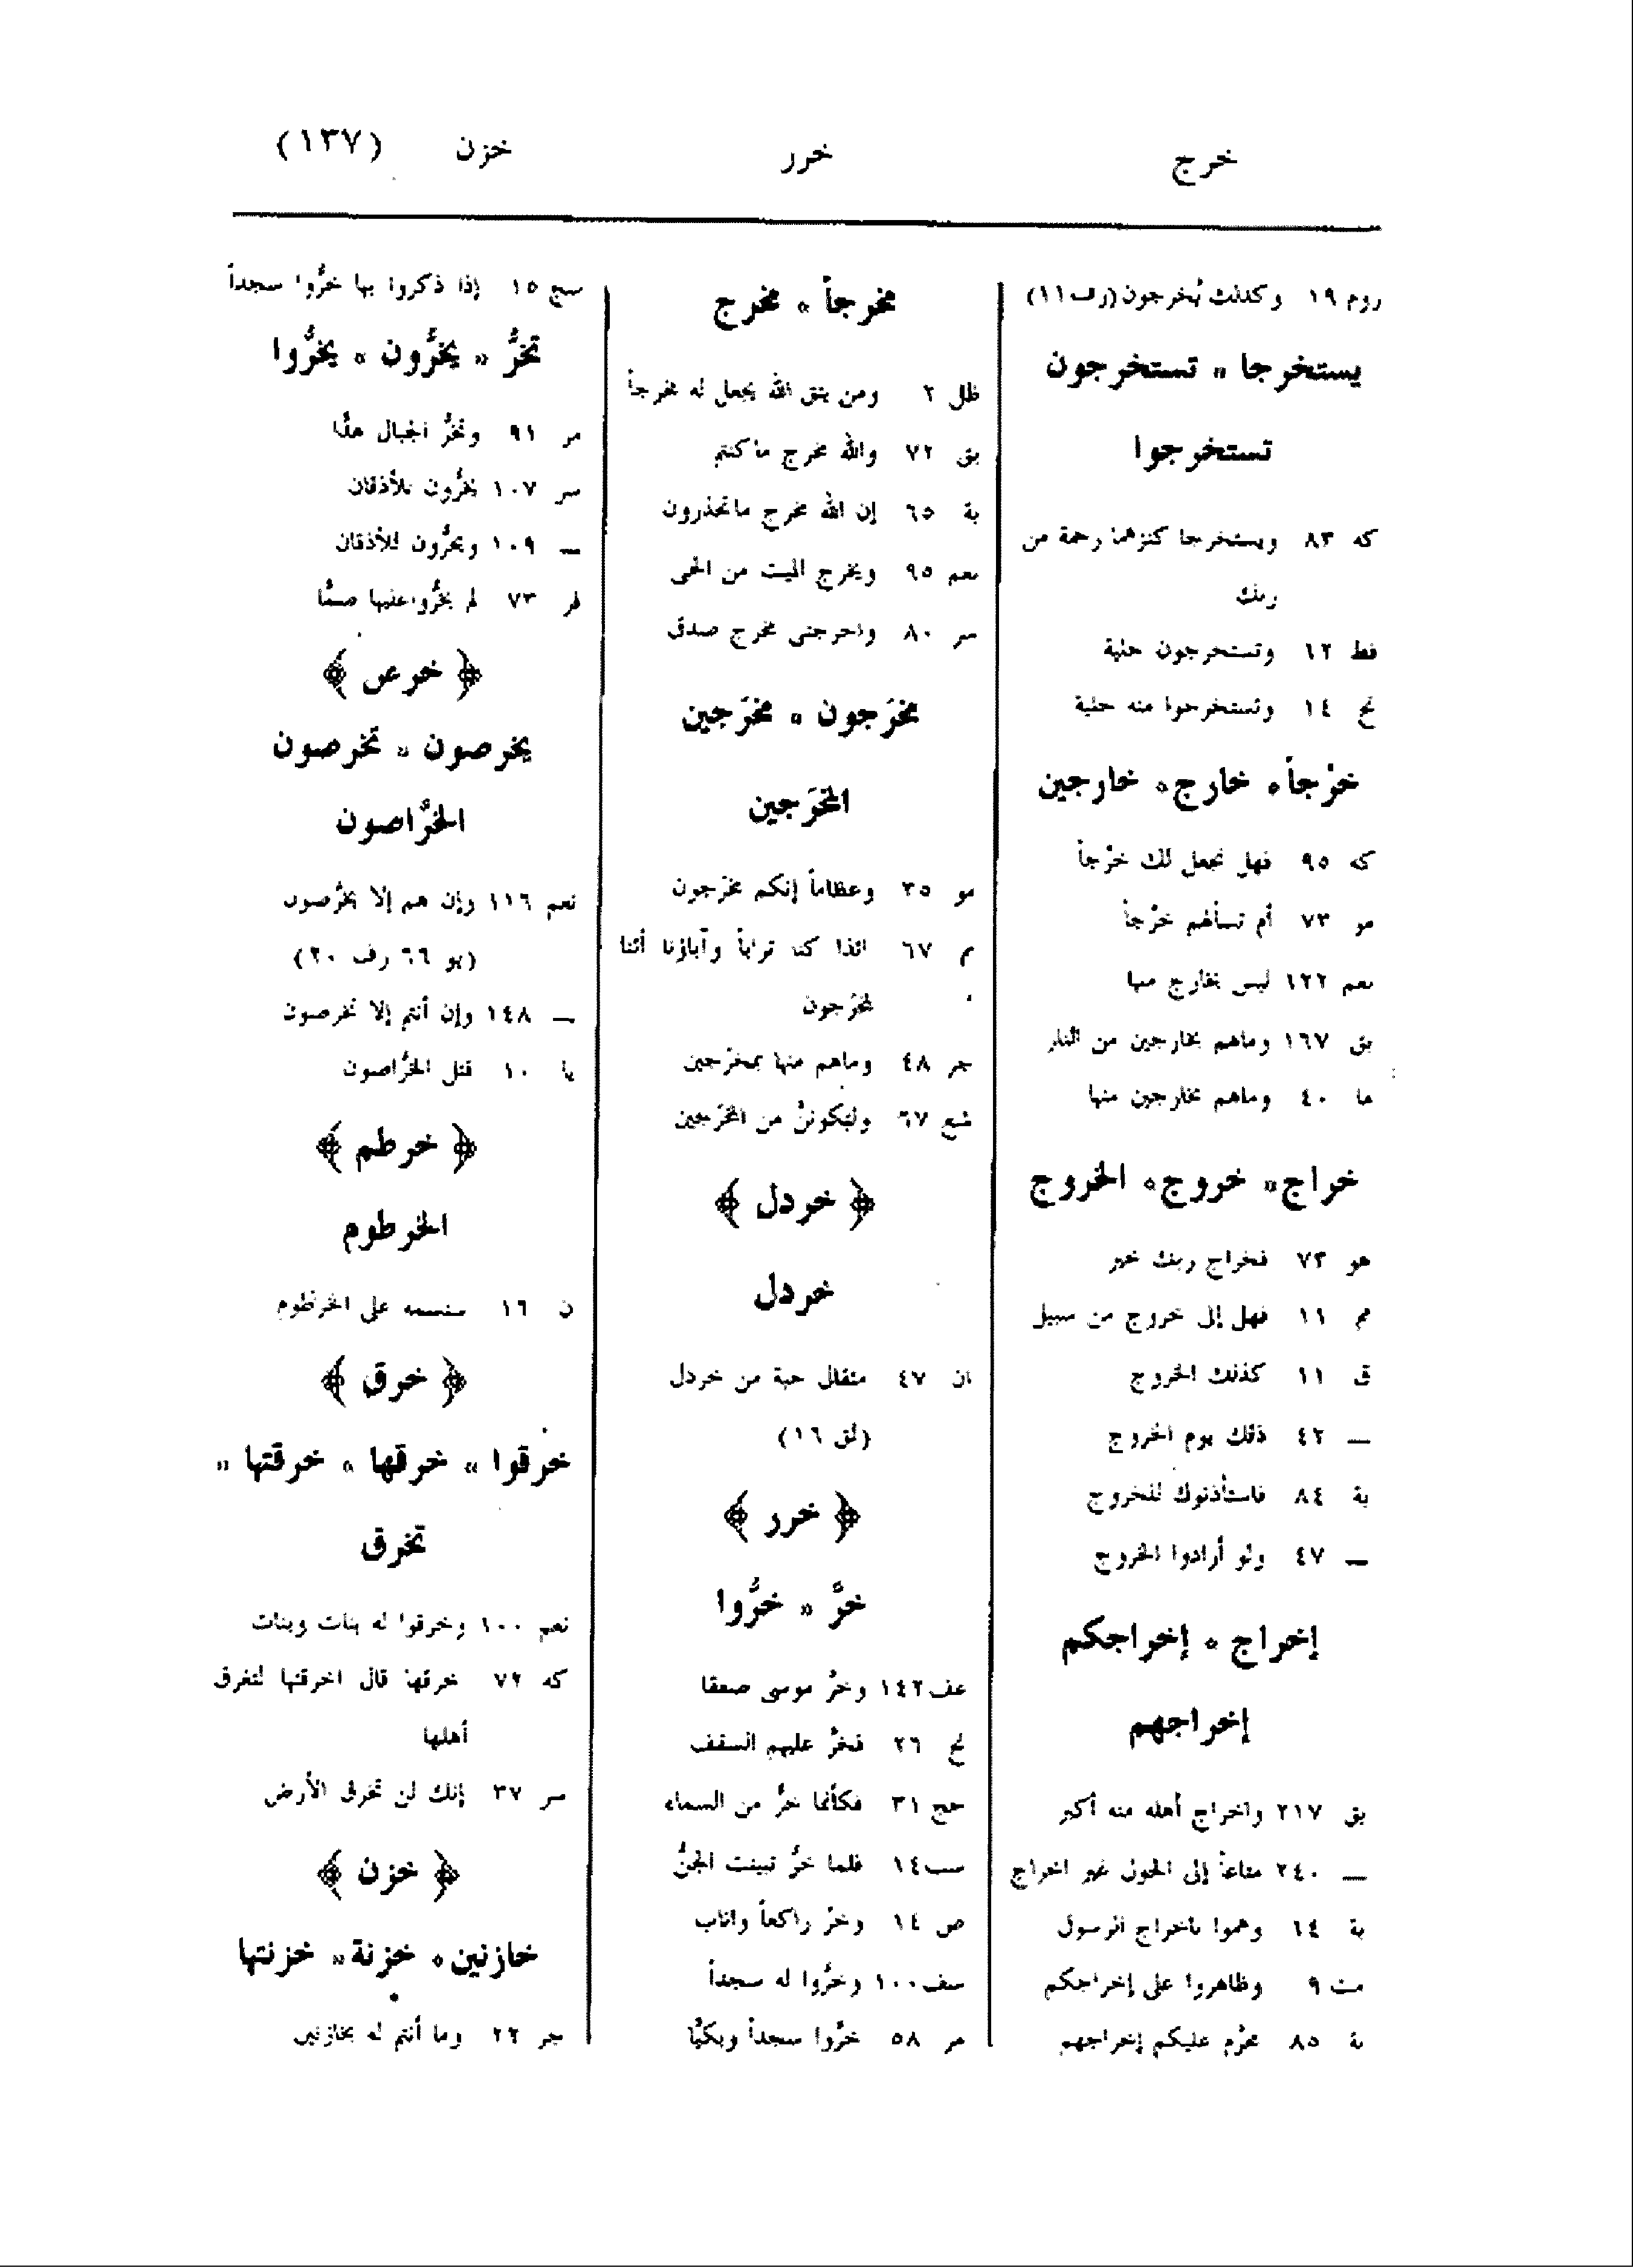 خرج خرر خزن (١٣٧)
روم ١٩ وكذلك تُخرجون (رف ١١)
يستخرجا * تستخرجون
تستخرجوا
كه ٨٣ ويستخرجا كنزهما رحمة من
ربك
فط ١٢ وتستخرجون حلية
نح ١٤ وتستخرجوا منه حلية
خرْجاً * خارج * خارجين
كه ٩٥ فهل نجعل لك خرْجاً
مو ٧٣ أم تسألهم خرْجاً
نعم ١٢٢ ليس بخارج منها
بق ١٦٧ وماهم بخارجين من النار
ما ٤٠ وماهم بخارجين منها
خراج * خروج * الخروج
مو ٧٣ فخراج ربك خير
مم ١١ فهل إلى خروج من سبيل
ق ١١ كذلك الخروج
— ٤٢ ذلك يوم الخروج
بة ٨٤ فاستأذنوك للخروج
— ٤٧ ولو أرادوا الخروج
إخراج * إخراجكم
إخراجهم
بق ٢١٧ واخراج أهله منه أكبر
— ٢٤٠ متاعاً إلى الحول غير اخراج
بة ١٤ وهموا باخراج الرسول
مت ٩ وظاهروا على إخراجكم
بة ٨٥ محرَّم عليكم إخراجهم
مخرجاً * مخرج
طل ٢ ومن يتق الله يجعل له مخرجاً
بق ٧٢ والله مخرج ماكنتم
بة ٦٥ إن الله مخرج ماتحذرون
نعم ٩٥ ويخرج الميت من الحى
سر ٨٠ واخرجنى مخرج صدق
مخرَجون * مخرَجين
المخرَجين
مو ٣٥ وعظاماً إنكم مخرَجون
م ٦٧ ائذا كنا تراباً وآباؤنا أئنا
لمخرَجون
جر ٤٨ وماهم منها بمخرَجين
شع ٦٧ وليكوننَّ من المخرَجين
﴿ خردل ﴾
خردل
ان ٤٧ مثقال حبة من خردل
(لق ١٦)
﴿ خرر ﴾
خرَّ * خرُّوا
عف ١٤٢ وخرَّ موسى صعقا
نح ٢٦ فخرَّ عليهم السقف
حج ٣١ فكأنما خرَّ من السماء
سب ١٤ فلما خرَّ تبينت الجنُّ
ص ١٤ وخرَّ راكعاً واناب
سف ١٠٠ وخرُّوا له سجداً
مر ٥٨ خرُّوا سجداً وبكيًّا
سج ١٥ إذا ذكروا بها خرُّوا سجداً
تخرُّ * يخرُّون * يخرُّوا
مر ٩١ وتخرُّ الجبال هدًّا
سر ١٠٧ يخرُّون للأذقان
— ١٠٩ ويخرُّون للأذقان
فر ٧٣ لم يخرُّوا عليها صمًّا
﴿ خرص ﴾
يخرصون * تخرصون
الخرَّاصون
نعم ١١٦ وإن هم إلا يخرُصون
(يو ٦٦ رف ٢٠)
— ١٤٨ وإن أنتم إلا تخرصون
يا ١٠ قتل الخرَّاصون
﴿ خرطم ﴾
الخرطوم
ن ١٦ سنسمه على الخرطوم
﴿ خرق ﴾
خرقوا * خرقها * خرقتها *
تخرق
نعم ١٠٠ وخرقوا له بنات وبنات
كه ٧٢ خرقها قال اخرقتها لتغرق
أهلها
سر ٣٧ إنك لن تخرق الأرض
﴿ خزن ﴾
خازنين * خزنة * خزنتها
جر ٢٢ وما أنتم له بخازنين